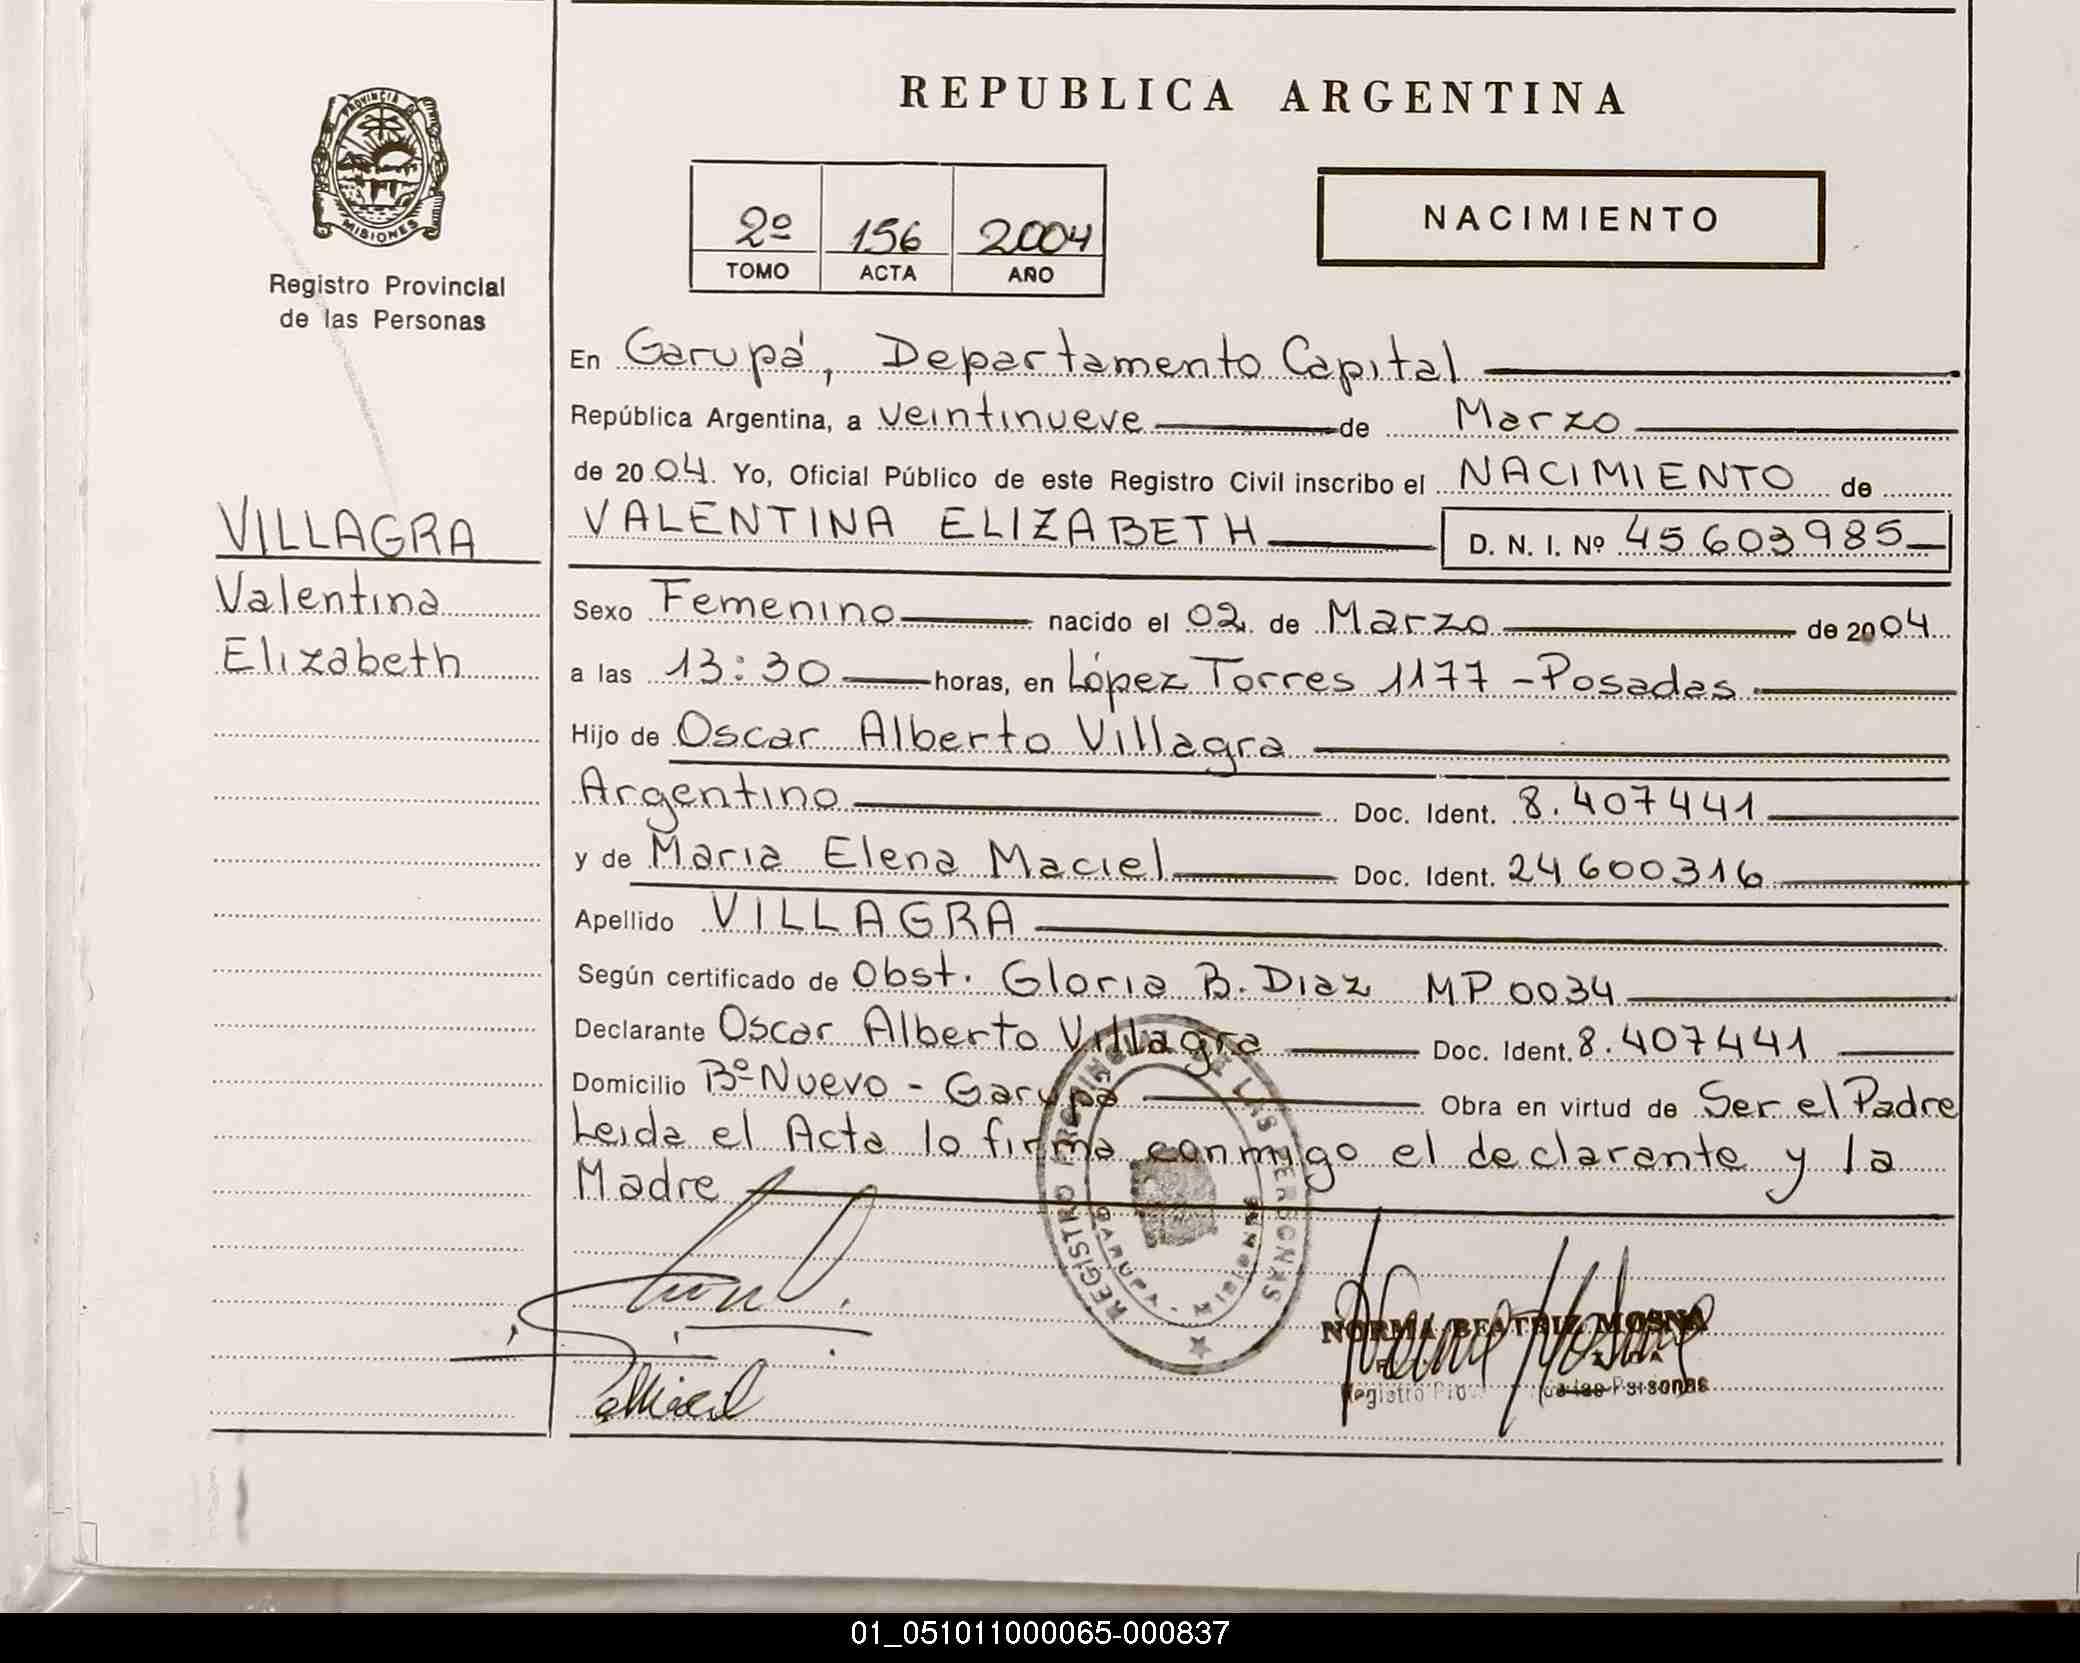 REPUBLICA ARGENTINA
PROVINCIA DE
MISIONES
Registro Provincial
de las Personas
2º 156 2004
TOMO ACTA AÑO
NACIMIENTO
En Garupá, Departamento Capital
República Argentina, a veintinueve de Marzo
de 2004. Yo, Oficial Público de este Registro Civil inscribo el NACIMIENTO de
VALENTINA ELIZABETH D. N. I. Nº 45603985
VILLAGRA
Valentina
Elizabeth
Sexo Femenino nacido el 02 de Marzo de 2004
a las 13:30 horas, en López Torres 1177 - Posadas
Hijo de Oscar Alberto Villagra
Argentino Doc. Ident. 8.407441
y de Maria Elena Maciel Doc. Ident. 24600316
Apellido VILLAGRA
Según certificado de Obst. Gloria B. Diaz MP 0034
Declarante Oscar Alberto Villagra Doc. Ident. 8.407441
Domicilio Bº Nuevo - Garupá Obra en virtud de Ser el Padre
Leida el Acta lo firma conmigo el declarante y la
Madre
REGISTRO PROVINCIAL DE LAS PERSONAS
GARUPA - MISIONES
NORMA BEATRIZ MOSNA
Registro de las Personas
01_051011000065-000837